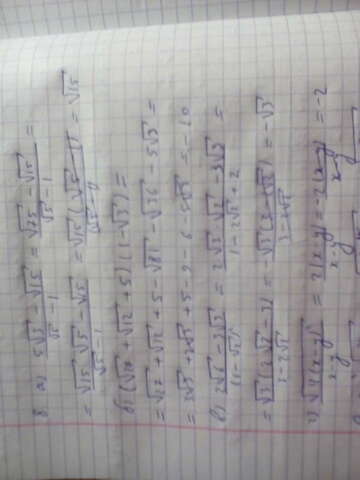 8. а) (5√3 − √15)/(√5 − 1) = (√75 − √15)/(√5 − 1) =
= (√15 √5 − √15)/(√5 − 1) = √15(√5 − 1)/(√5 − 1) = √15
б) (√27 + √12 + 5)(1 − √3) =
= √27 + √12 + 5 − √81 − √36 − 5√3 =
= 3√3 + 2√3 + 5 − 9 − 6 − 5√3 = −10
в) (2√6 − 3√3)/(1 − √2)² = (2√3·√2 − 3√3)/(1 − 2√2 + 2) =
= √3(2√2 − 3)/(3 − 2√2) = −√3(3 − 2√2)/(3 − 2√2) = −√3
г) √4(x − y)²/(x − y) = 2|x − y|/(x − y) = −2(x − y)/(x − y) = −2